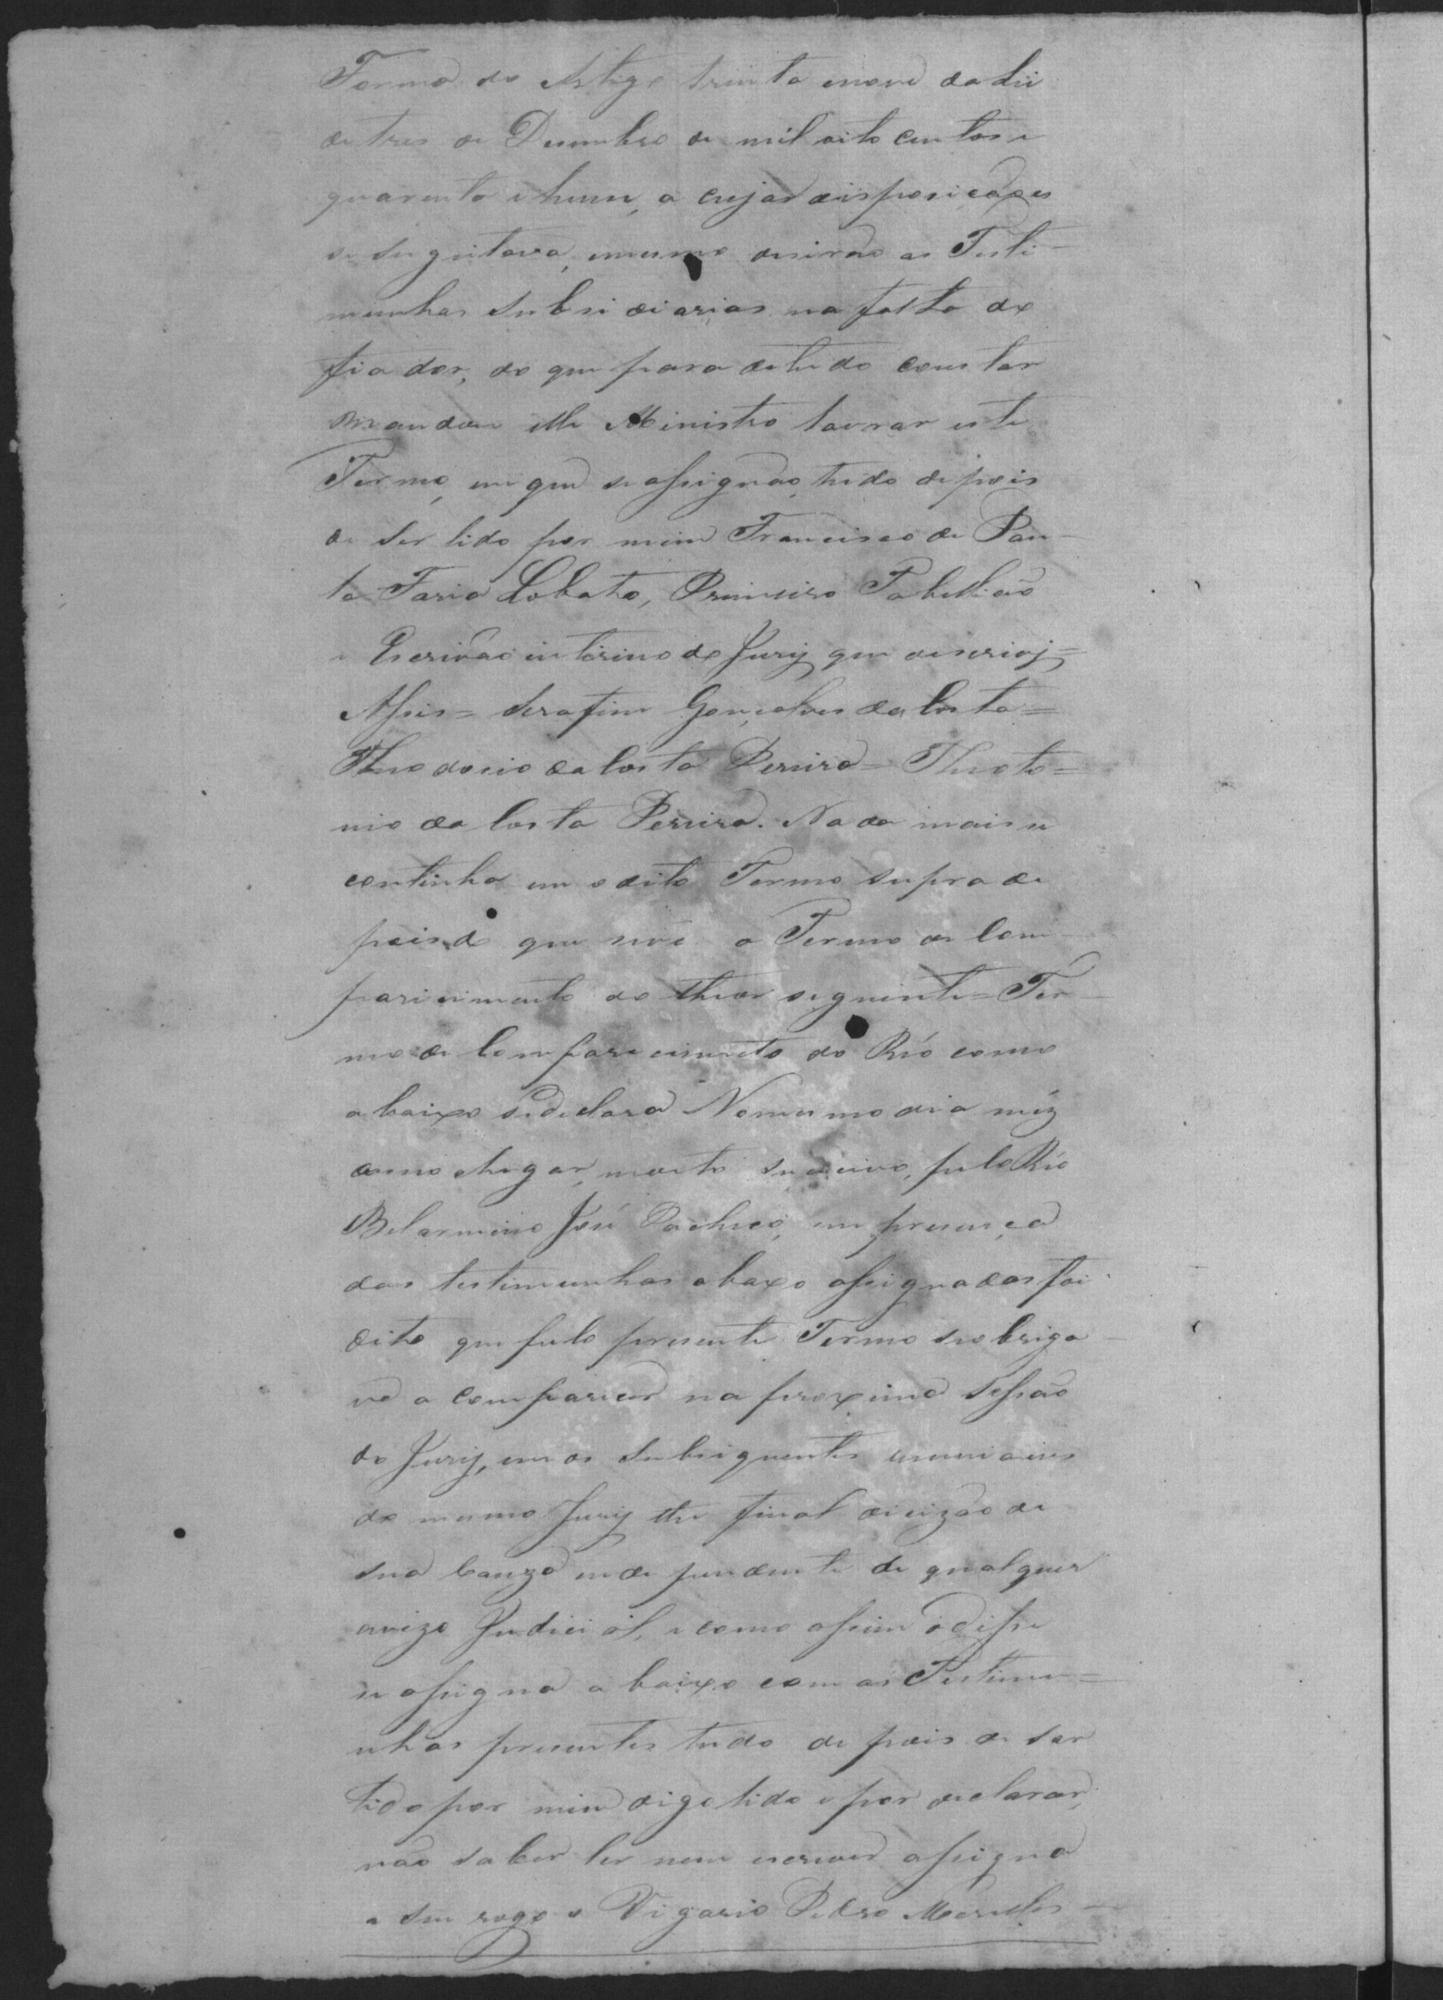 Forma do Artigo trinta enove da Lei
de tres de Desembro de mil oito centos e
quarenta ehum, a cujas disposicões
se sugeitava, emesmo as Teste-
munhas subsidiarias na falta de
fiador, do que para detudo constar
mandou elle Ministro lavrar este
Termo, em que se assignão, tudo depois
de ser lido por mim Francisco de Pau-
la Faria Lobato, Primeiro Tabellião
e Escrivão interino do Jury que oescrivj=
Assis= Serafim Gonçalves da Costa=
Theodosio da Costa Pereira= Theoto=
nio da Costa Pereira. Nada mais se
continha em o dito Termo supra de
pois do que se vê o Termo de Com-
parecimento do theor seguinte= Ter-
mo de Comparecimento do Réo como
abaixo sedeclara Nomesmo dia mêz
anno elugar, pelo Réo
Belarmino José Pacheco, em presença
das testemunhas abaxo assignadas foi
dito que pelo presente Termo seobriga-
va a comparecer na proxima Sessão
do Jury, em as subsequentes
do mesmo Jury the final decizão de
sua Cauza independente de qualquer
avizo Judicial, e como assim odisse
se assigna abaixo com as Testemu=
nhas presentes tudo depois de ser
lido por mim digo lido e por declarar,
não saber ler nem escrever assigna
a seu rogo o Vigario Pedro Meirelles